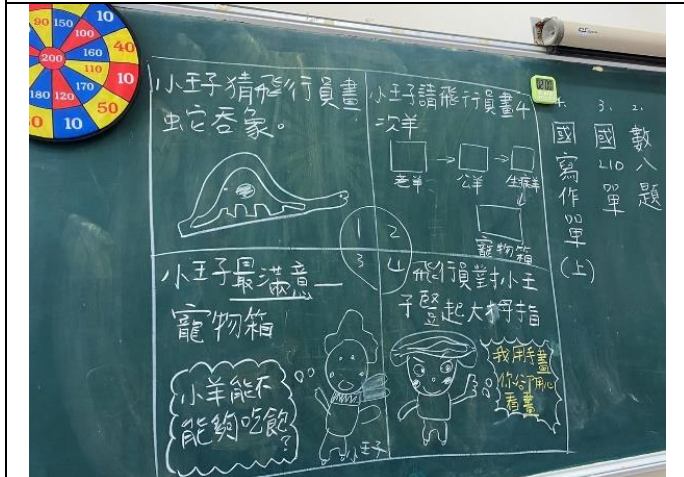 90
150
10
100
160
40
200
110
10
170
180
120
50
10
小王子猜飛行員畫
蛇吞象。
小王子請飛行員畫4
次羊
老羊
公羊
生病羊
寵物箱
1
2
3
4
小王子最滿意—
寵物箱
小羊能不
能夠吃飽
?
小王子
飛行員對小王
子豎起大拇指
我用手畫
你卻用心
看畫
2.數八題
3.國L10單
4.國寫作單(上)